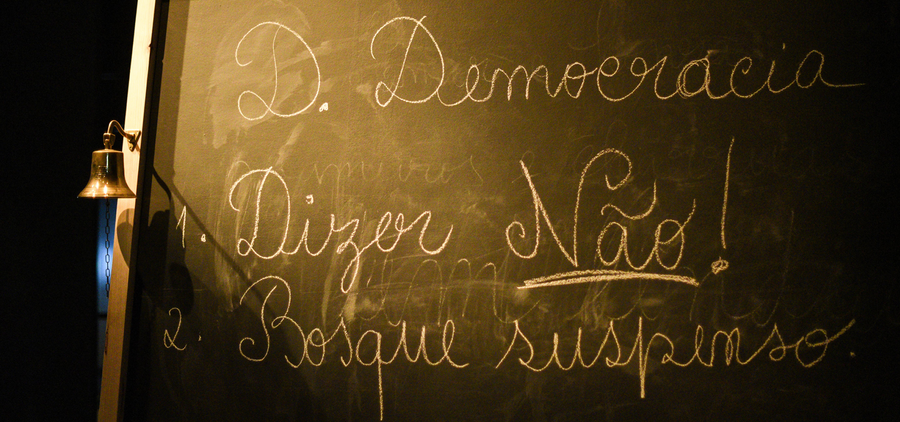 D. Democracia
1. Dizer Não!
2. Bosque suspenso.